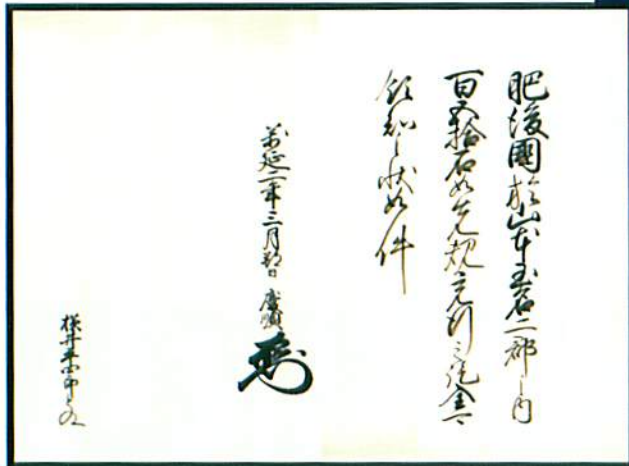 肥後國於山本玉名二郡之内
百五拾石如先規充行之訖全可
領知之状如件
萬延二年三月朔日 慶順
横井平四郎とのへ